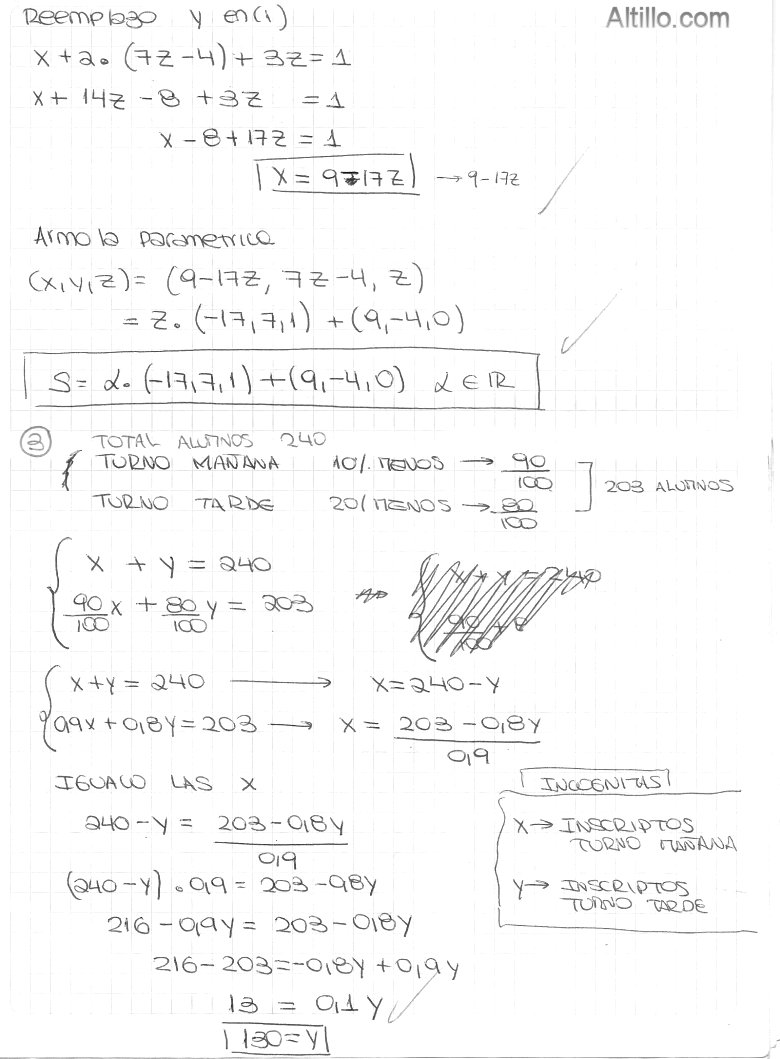 Reemplazo y en (1)
Altillo.com
x + 2 • (7z - 4) + 3z = 1
x + 14z - 8 + 3z = 1
x - 8 + 17z = 1
x = 9 - 17z → 9 - 17z
Armo la parametrica
(x, y, z) = (9 - 17z, 7z - 4, z)
= z • (-17, 7, 1) + (9, -4, 0)
S = α • (-17, 7, 1) + (9, -4, 0) α ∈ IR
3 TOTAL ALUMNOS 240
TURNO MAÑANA 10% MENOS → 90/100
203 ALUMNOS
TURNO TARDE 20% MENOS → 80/100
x + y = 240
90/100 x + 80/100 y = 203
x + y = 240
90/100
x + y = 240 → x = 240 - y
0,9x + 0,8y = 203 → x = (203 - 0,8y)/0,9
IGUALO LAS X
240 - y = (203 - 0,8y)/0,9
(240 - y) • 0,9 = 203 - 0,8y
216 - 0,9y = 203 - 0,8y
216 - 203 = -0,8y + 0,9y
13 = 0,1y
130 = y
INCOGNITAS
X → INSCRIPTOS
TURNO MAÑANA
Y → INSCRIPTOS
TURNO TARDE